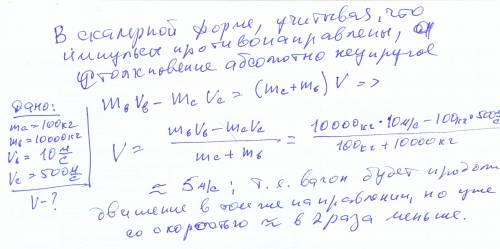 В скалярной форме, учитывая, что
импульсы противонаправлены, а
столкновение абсолютно неупругое
Дано:
mс = 100кг
mв = 10000кг
Vв = 10 м/с
Vс = 500 м/с
V - ?
mв Vв - mс Vс = (mс + mв) V =>
V = (mв Vв - mс Vс) / (mс + mв) = (10000кг * 10 м/с - 100кг * 500 м/с) / (100кг + 10000кг)
≈ 5 м/с ; т.е. вагон будет продолж
движение в том же направлении, но уже
со скоростью ≈ в 2 раза меньше.